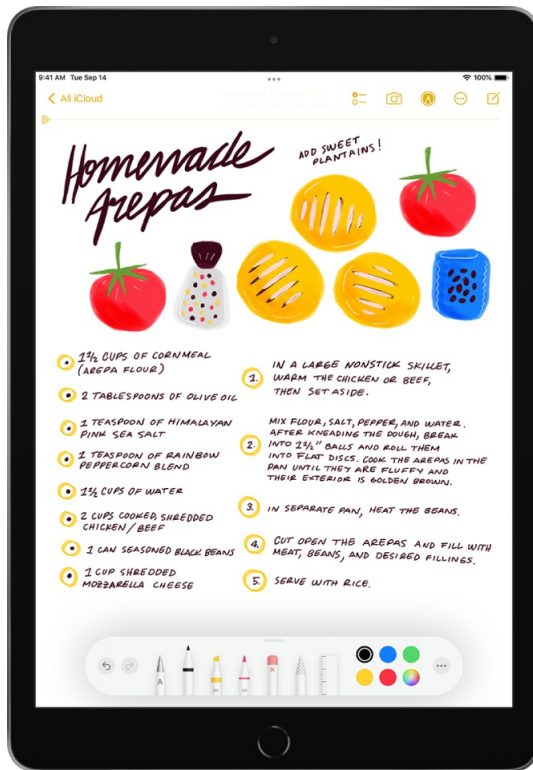 9:41 AM Tue Sep 14
100%
All iCloud
Homemade
Arepas
ADD SWEET
PLANTAINS!
1½ CUPS OF CORNMEAL
(AREPA FLOUR)
2 TABLESPOONS OF OLIVE OIL
1 TEASPOON OF HIMALAYAN
PINK SEA SALT
1 TEASPOON OF RAINBOW
PEPPERCORN BLEND
1½ CUPS OF WATER
2 CUPS COOKED, SHREDDED
CHICKEN/BEEF
1 CAN SEASONED BLACK BEANS
1 CUP SHREDDED
MOZZARELLA CHEESE
1. IN A LARGE NONSTICK SKILLET,
WARM THE CHICKEN OR BEEF,
THEN SET ASIDE.
2. MIX FLOUR, SALT, PEPPER, AND WATER.
AFTER KNEADING THE DOUGH, BREAK
INTO 1½" BALLS AND ROLL THEM
INTO FLAT DISCS. COOK THE AREPAS IN THE
PAN UNTIL THEY ARE FLUFFY AND
THEIR EXTERIOR IS GOLDEN BROWN.
3. IN SEPARATE PAN, HEAT THE BEANS.
4. CUT OPEN THE AREPAS AND FILL WITH
MEAT, BEANS, AND DESIRED FILLINGS.
5. SERVE WITH RICE.
A